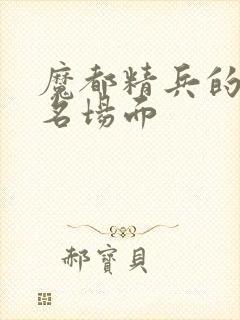 魔都精兵的
名場面
郝寶貝